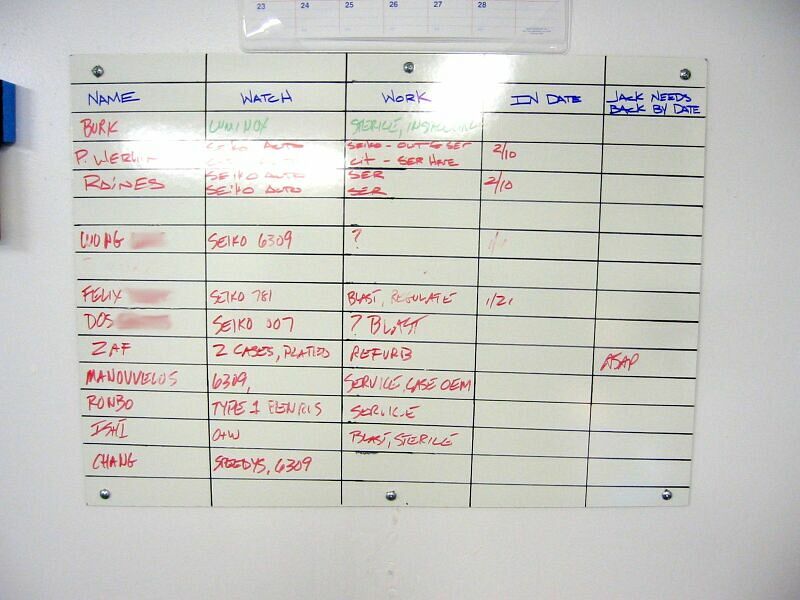 23 24 25 26 27 28
NAME WATCH WORK IN DATE JACK NEEDS
BACK BY DATE
BURK LUMINOX STERILE,
P. SEIKO AUTO SEIKO - OUT & SET 2/10
CIT - SER
RAINES SEIKO AUTO SER 2/10
SEIKO AUTO SER
WONG SEIKO 6309 ?
FELIX SEIKO 781 BLAST, REGULATE 1/21
DOS SEIKO 007 ? BLAST
ZAF 2 CASES, PLATED REFURB ASAP
MANOUVELOS 6309, SERVICE, CASE OEM
RONBO TYPE 1 SERVICE
ISHI O+W BLAST, STERILE
CHANG SPEEDYS, 6309